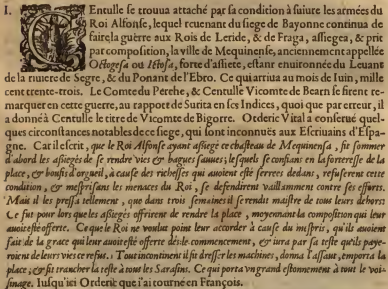 I. CEntulle se trouua attaché par sa condition à suiure les armées du
Roi Alfonse, lequel reuenant du siege de Bayonne continua de
faire la guerre aux Rois de Leride, & de Fraga, assiegea, & prit
par composition, la ville de Mequinense, anciennement appellée
Octogesa ou Ictosa, forte d'assiete, estant enuironnée du Leuant
de la riuiere de Segre, & du Ponant de l'Ebro. Ce qui arriua au mois de Iuin, mille
cent trente-trois. Le Comte du Perche, & Centulle Vicomte de Bearn se firent re-
marquer en cette guerre, au rapport de Surita en ses Indices, quoi que par erreur, il
a donné à Centulle le titre de Vicomte de Bigorre. Orderic Vital a conserué quel-
ques circonstances notables de ce siege, qui sont inconnuës aux Escriuains d'Espa-
gne. Car il escrit, que le Roi Alfonse ayant assiegé ce chasteau de Mequinensa, fit sommer
d'abord les assiegés de se rendre vies & bagues sauues, lesquels se confians en la forteresse de la
place, & bouffis d'orgueil, à cause des richesses qui auoient esté serrees dedans, refuserent cette
condition, & mesprisans les menaces du Roi, se defendirent vaillamment contre ses efforts.
Mais il les pressa tellement, que dans trois semaines il se rendit maistre de tous leurs dehors:
Ce fut pour lors que les assiegés offrirent de rendre la place, moyennant la composition qui leur
auoit esté offerte. Ce que le Roi ne voulut point leur accorder à cause du mespris, qu'ils auoient
fait de la grace qui leur auoit esté offerte dés le commencement, & iura par sa teste qu'ils paye-
roient de leurs vies ce refus. Tout incontinent il fit dresser les machines, donna l'assaut, emporta la
place, & fit trancher la teste à tous les Sarasins. Ce qui porta vn grand estonnement à tout le voi-
sinage. Iusqu'ici Orderic que i'ai tourné en François.